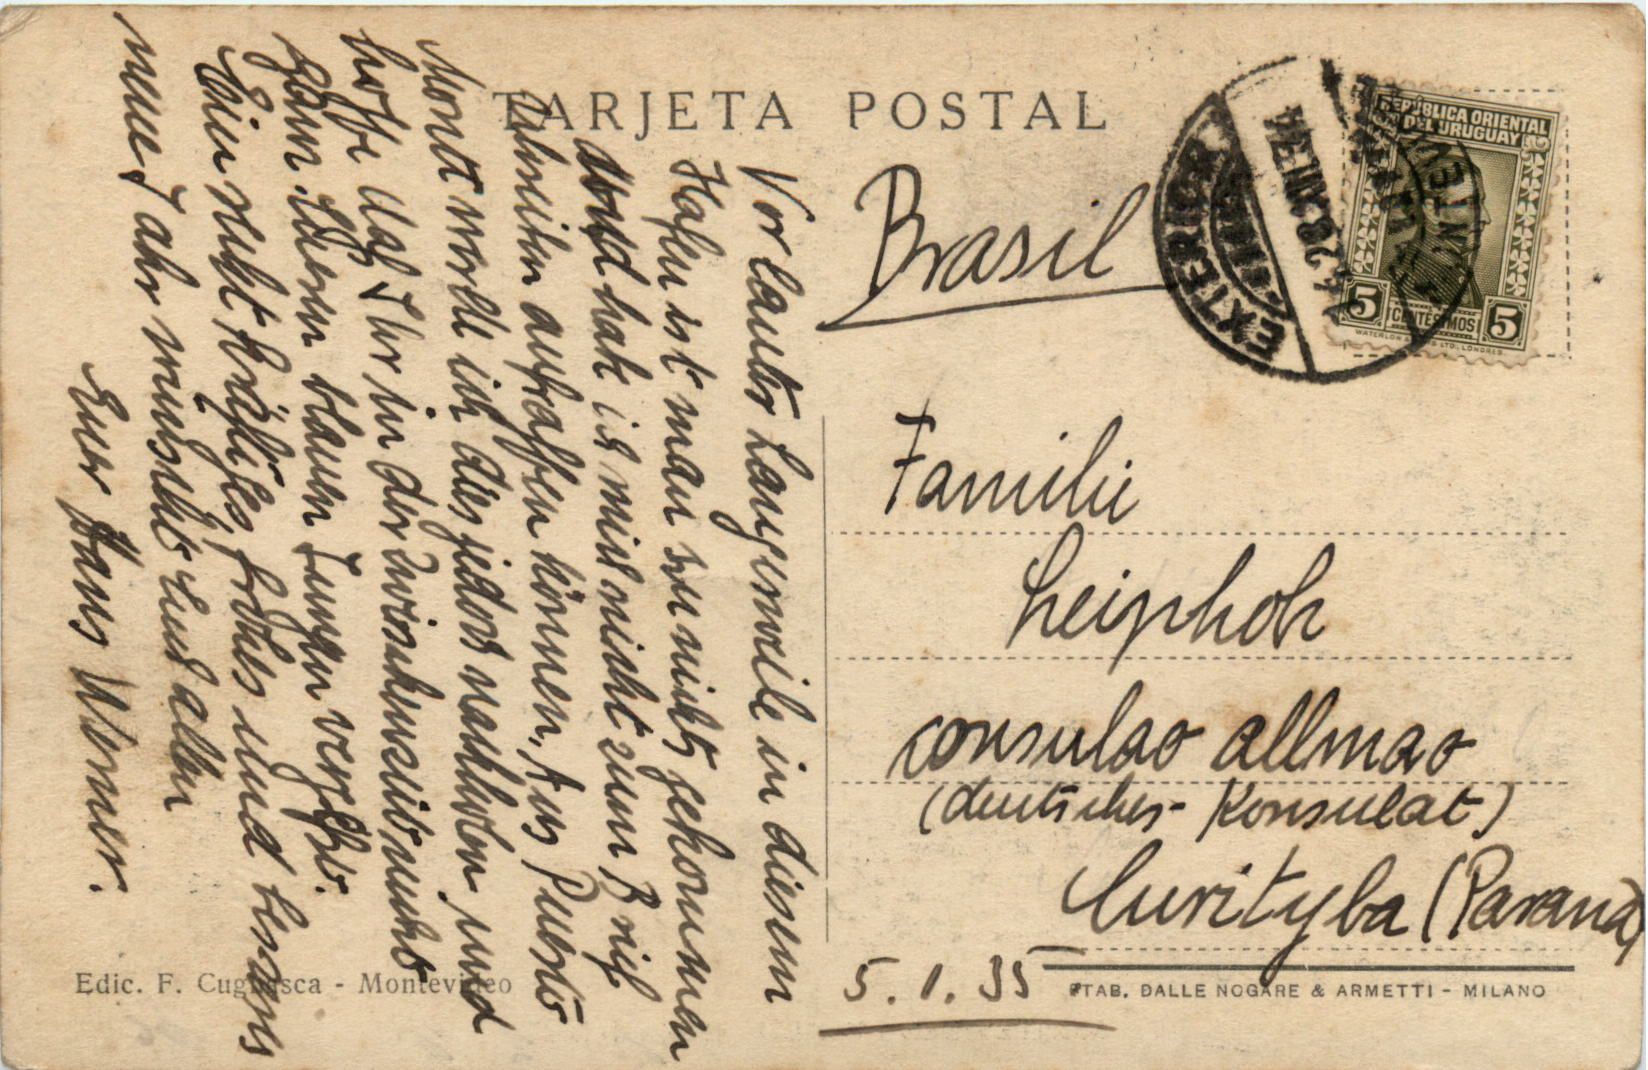 TARJETA POSTAL
REPÚBLICA ORIENTAL
DEL URUGUAY
5 CENTÉSIMOS 5
EXTERIOR
28.XII.34
Brasil
Familie
Leiphok
consulao allmao
(deutsches - Konsulat)
Curityba (Parana)
5.1.35
Vor lauter Langeweile in diesem
Hafen ist man zu nichts gekommen
und habe ich mich nicht zum Brief
schreiben aufraffen können. Aus Puerto
Montt werde ich dies jedoch nachholen und
hoffe daß Ihr in der Zwischenzeit nicht
Euren blauen Jungen vergeßt.
Ein recht kräftiges, frohes und
neues Jahr wünscht Euch allen
Euer Hans Werner.
Edic. F. Cugnasca - Montevideo
STAB. DALLE NOGARE & ARMETTI - MILANO